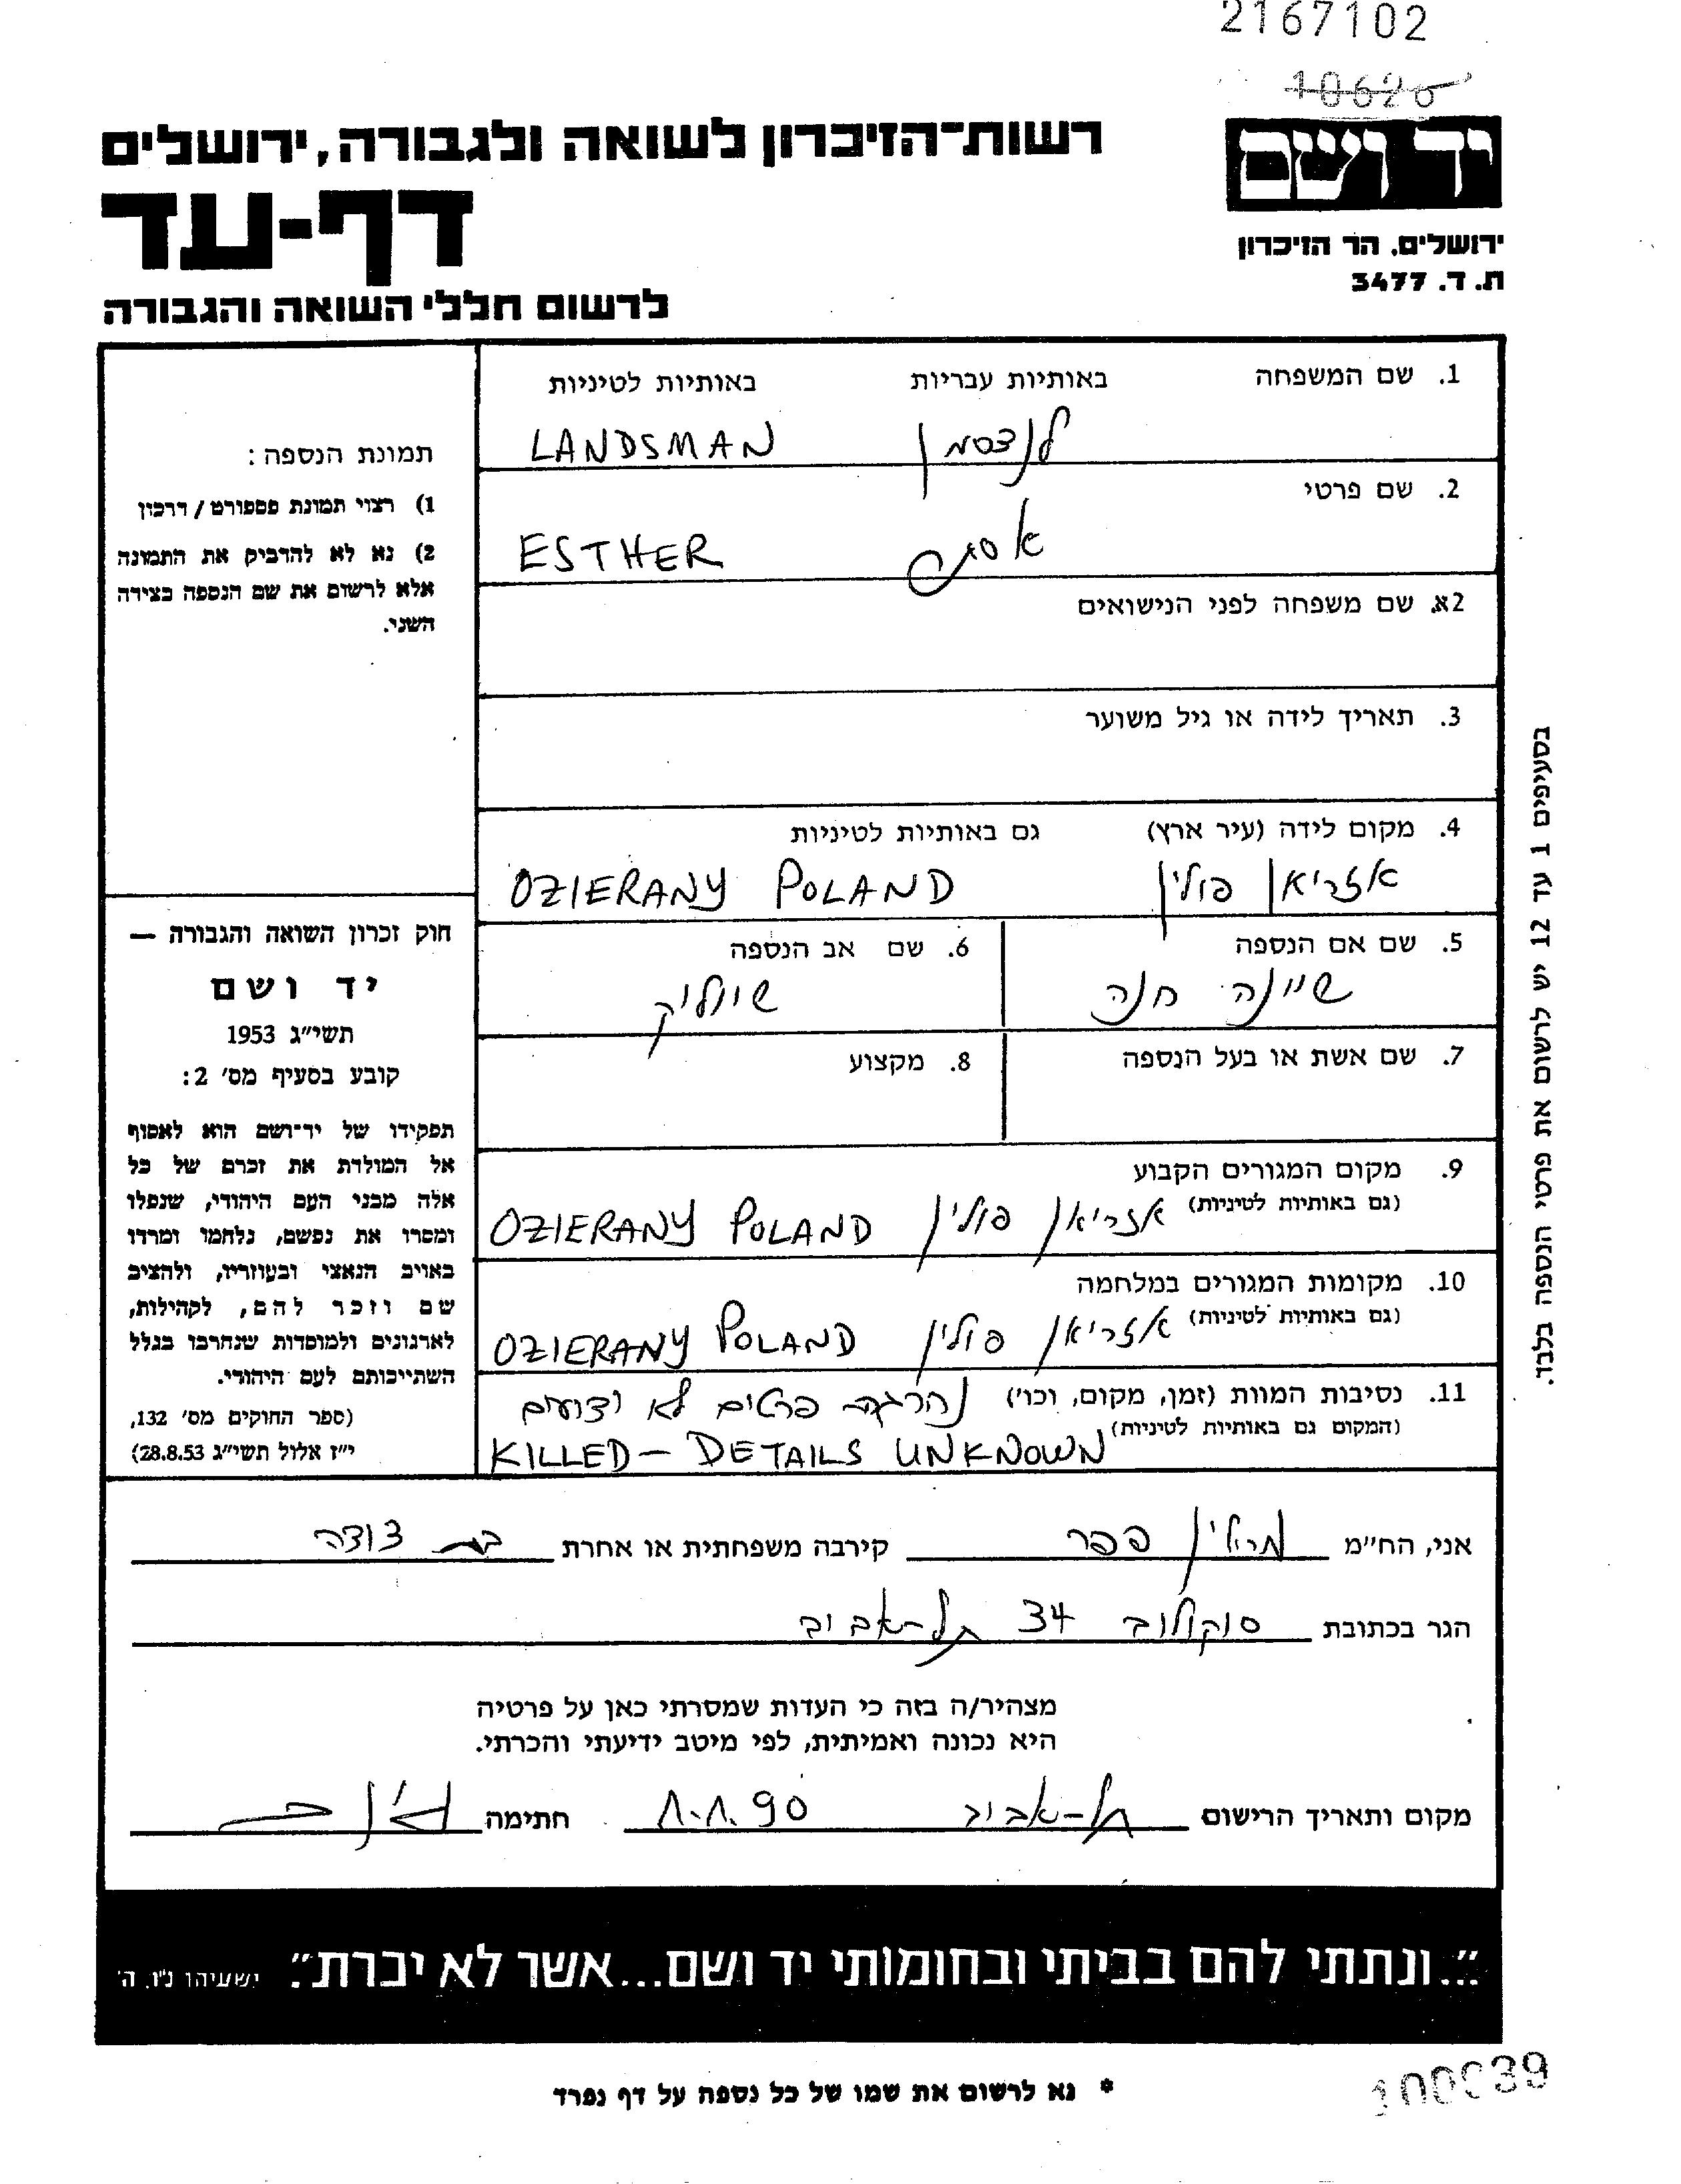 2167102
10626
רשות־הזיכרון לשואה ולגבורה, ירושלים
יד ושם
דף-עד
ירושלים. הר הזיכרון
ת. ד. 3477
לרשום חללי השואה והגבורה
1. שם המשפחה באותיות עבריות באותיות לטיניות
לנצסמן LANDSMAN
2. שם פרטי
אסתר ESTHER
2א. שם משפחה לפני הנישואים
3. תאריך לידה או גיל משוער
4. מקום לידה (עיר ארץ) גם באותיות לטיניות
אזריאן פולין OZIERANY POLAND
5. שם אם הנספה 6. שם אב הנספה
שיינה חנה שיוליק
7. שם אשת או בעל הנספה 8. מקצוע
9. מקום המגורים הקבוע
(גם באותיות לטיניות) אזריאן פולין OZIERANY POLAND
10. מקומות המגורים במלחמה
(גם באותיות לטיניות) אזריאן פולין OZIERANY POLAND
11. נסיבות המוות (זמן, מקום, וכו׳) נהרגה פרטים לא ידועים
(המקום גם באותיות לטיניות) KILLED – DETAILS UNKNOWN
תמונת הנספה:
1) רצוי תמונת פספורט / דרכון
2) נא לא להדביק את התמונה
אלא לרשום את שם הנספה בצידה
השני.
חוק זכרון השואה והגבורה —
יד ושם
תשי״ג 1953
קובע בסעיף מס׳ 2:
תפקידו של יד־ושם הוא לאסוף
אל המולדת את זכרם של כל
אלה מבני העם היהודי, שנפלו
ומסרו את נפשם, נלחמו ומרדו
באויב הנאצי ובעוזריו, ולהציב
שם וזכר להם, לקהילות,
לארגונים ולמוסדות שנחרבו בגלל
השתייכותם לעם היהודי.
(ספר החוקים מס׳ 132,
י״ז אלול תשי״ג 28.8.53)
בסעיפים 1 עד 12 יש לרשום את פרטי הנספה בלבד.
אני, הח״מ פפר קירבה משפחתית או אחרת בת דודה
הגר בכתובת סוקולוב 34 תל-אביב
מצהיר/ה בזה כי העדות שמסרתי כאן על פרטיה
היא נכונה ואמיתית, לפי מיטב ידיעתי והכרתי.
מקום ותאריך הרישום תל-אביב חתימה
״...ונתתי להם בביתי ובחומותי יד ושם...אשר לא יכרת״. ישעיהו נ״ו, ה׳
* נא לרשום את שמו של כל נספה על דף נפרד